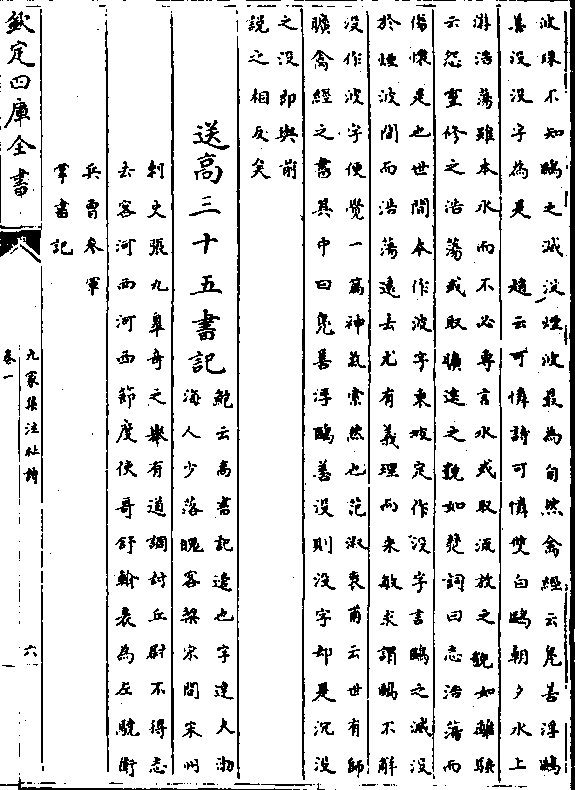 波殊不知鷗之滅沒煙波最為自然禽經云鳧善浮鷗
善沒沒字為是　趙云可憐詩可憐雙白鷗朝夕水上
游浩蕩雖本水而不必專言水或取流放之貌如離騷
云怨靈修之浩蕩或取曠遠之貌如楚詞曰志浩蕩而
傷懷是也世間本作波字東坡定作沒字言鷗之滅沒
於煙波間而浩蕩遠去尤有義理而來敏求謂鷗不解
沒作波字便覺一篇神氣索然也范淑衷甫云世有師
曠禽經之書其中曰鳧善浮鷗善沒則沒字却是沉沒
之沒即與前
說之相反矣
送高三十五書記
鮑云高書記適也字達夫渤
海人少落魄客梁宋間宋州
刺史張九臯奇之舉有道調封丘尉不得志
去客河西河西節度使哥舒翰表為左驍衛
兵曹參軍
掌書記
欽定四庫全書
九家集注杜詩
卷一
六